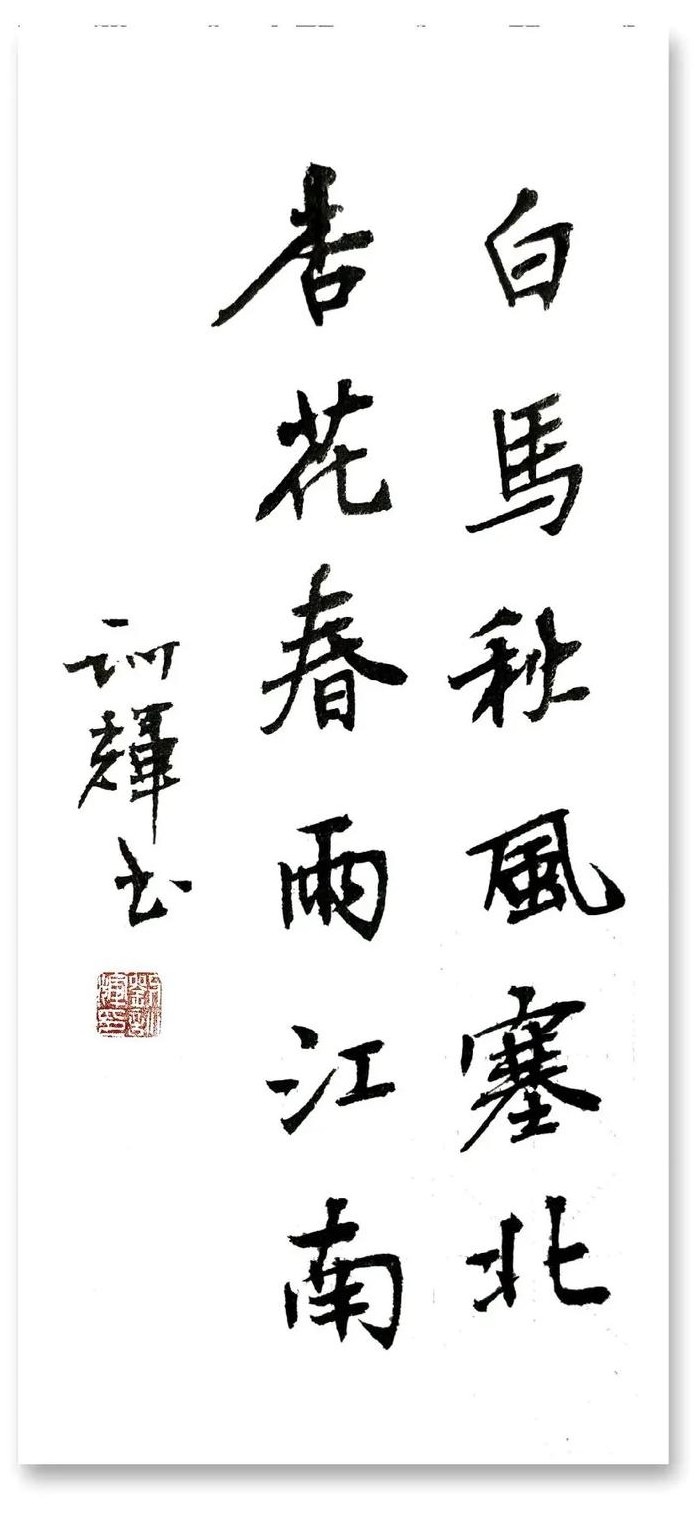 白馬秋風塞北
杏花春雨江南
訓輝書